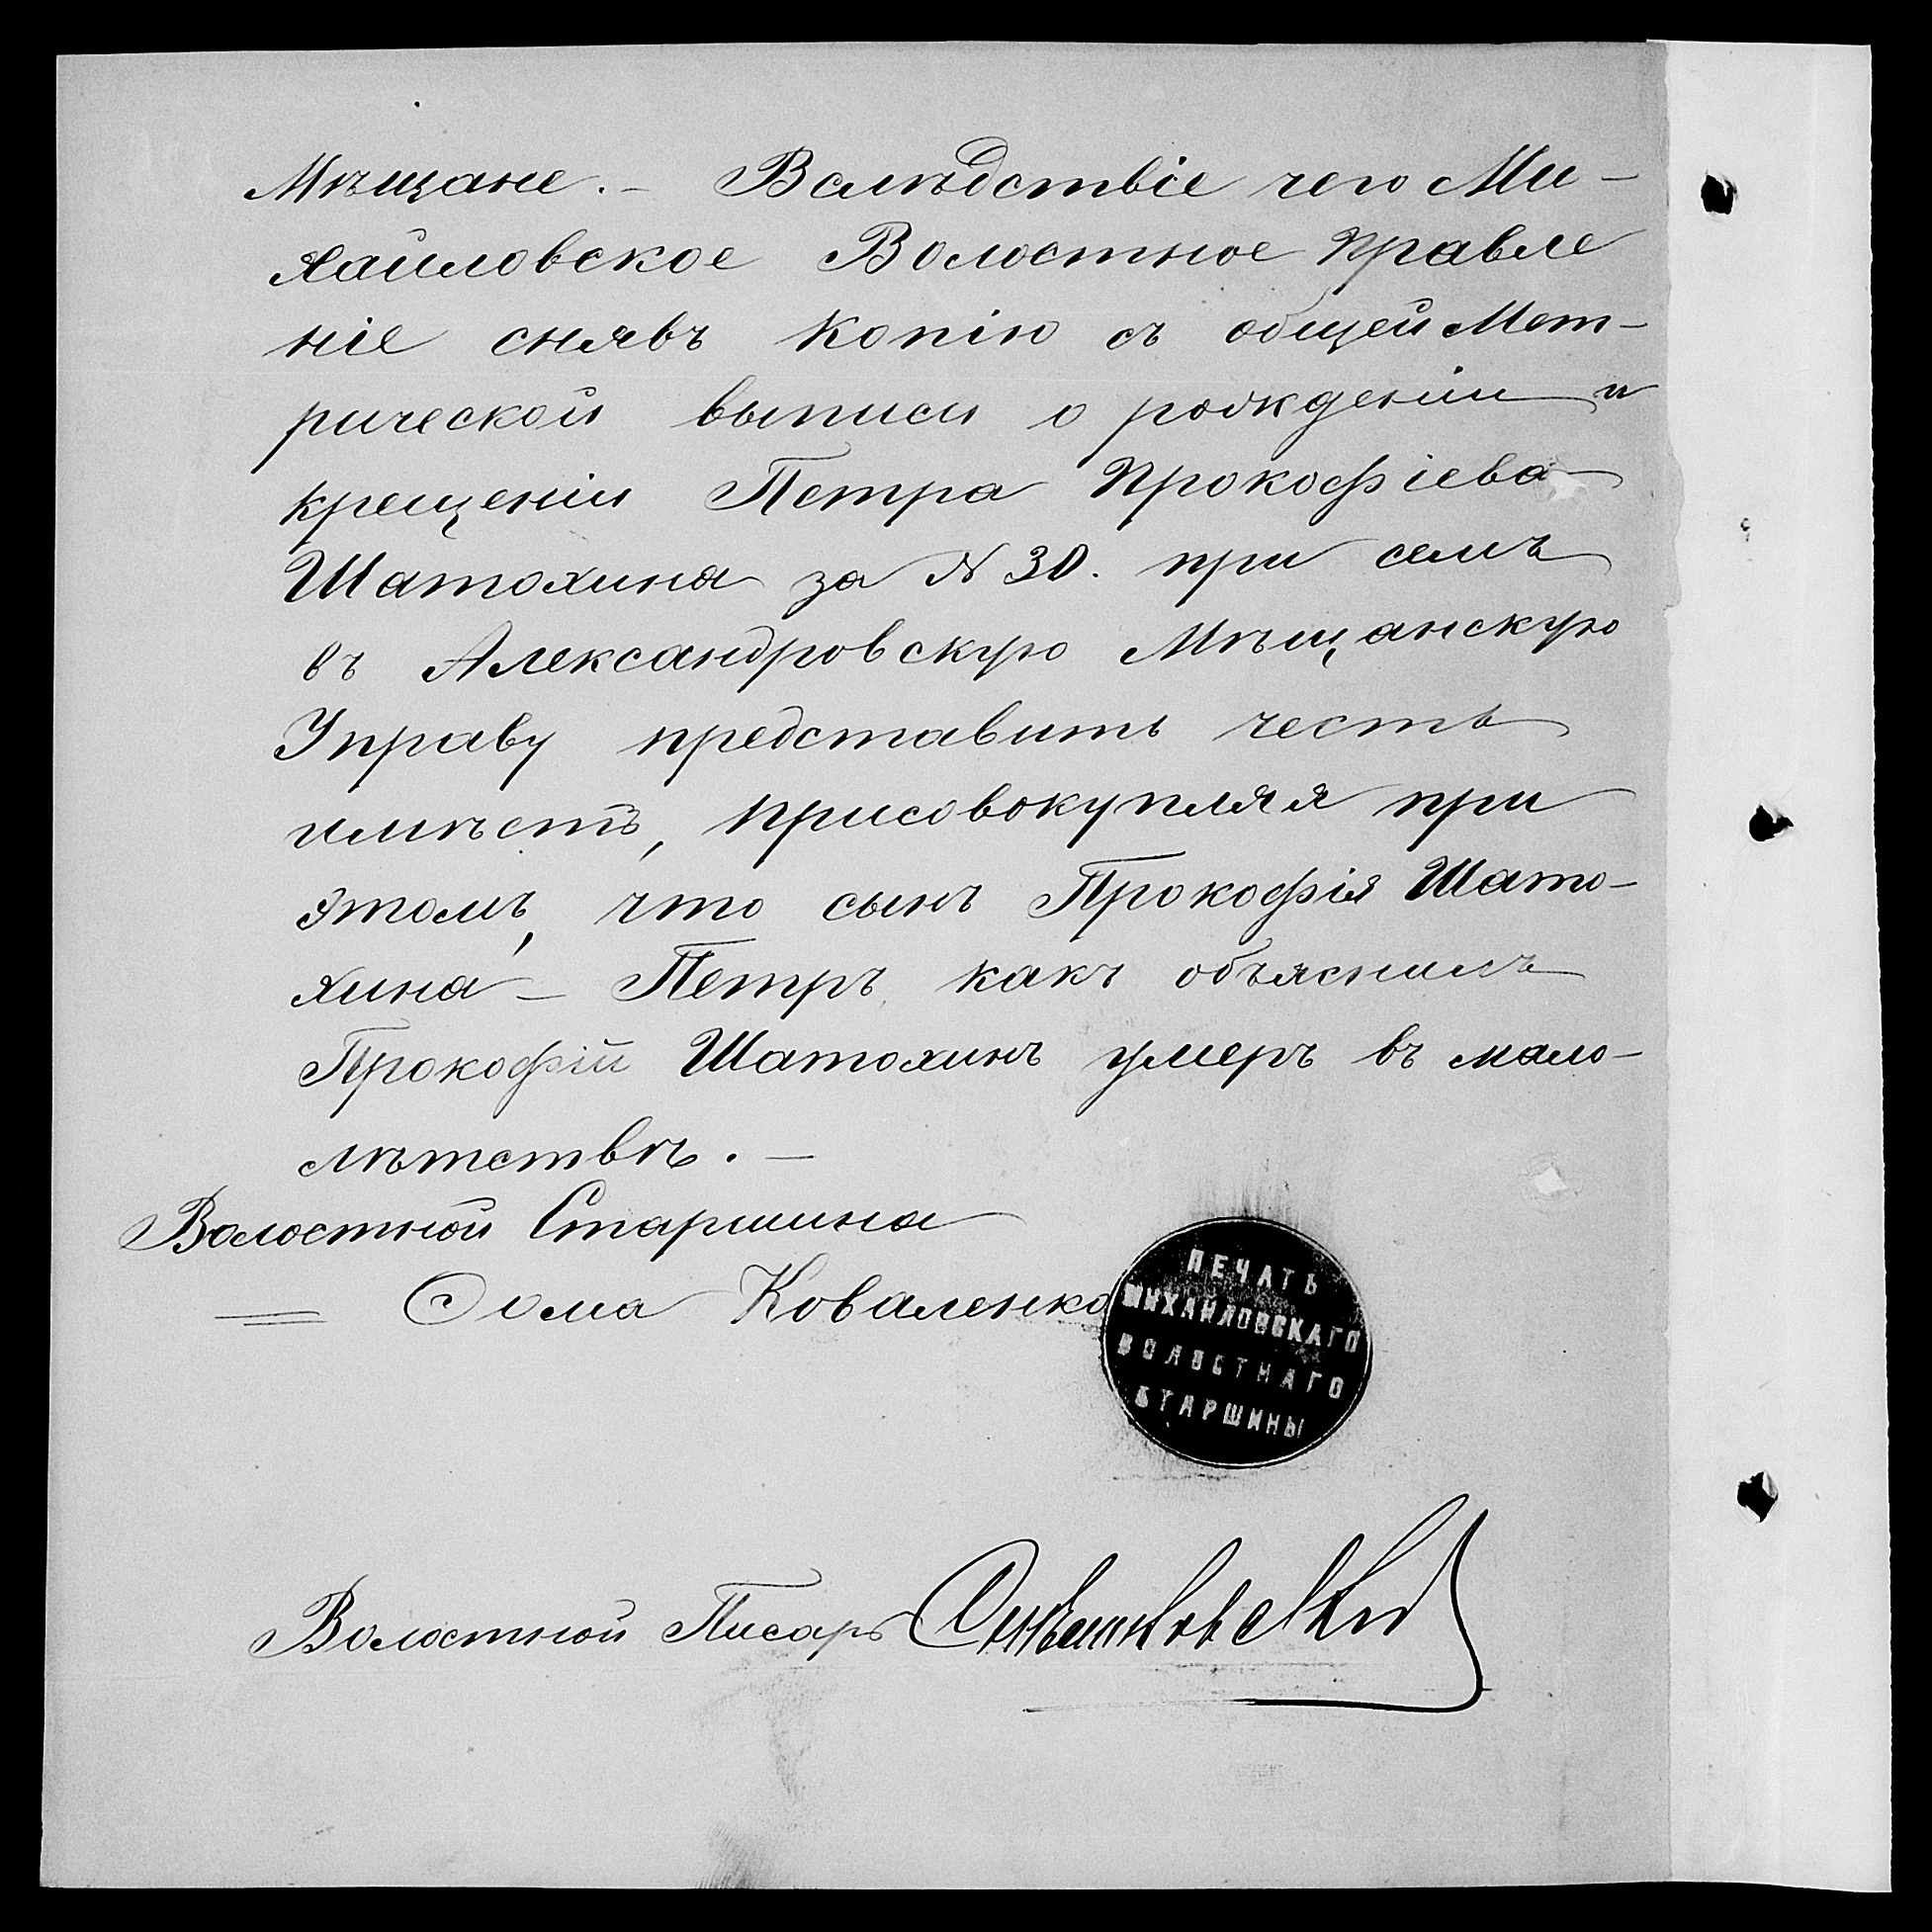 Мѣщане. — Вслѣдствіе чего Ми-
хайловское Волостное Правле
ніе снявъ копію съ общей Мет-
рической выписи о рожденіи и
крещеніи Петра Прокофіева
Шатохина за № 30. при семъ
въ Александровскую Мѣщанскую
Управу представить честь
имѣетъ, присовокупляя при
этомъ, что сынъ Прокофія Шато-
хина — Петръ какъ объяснилъ
Прокофій Шатохинъ умеръ въ мало-
лѣтствѣ. —
Волостной Старшина
Фома Коваленко
ПЕЧАТЬ
МИХАЙЛОВСКАГО
ВОЛОСТНАГО
СТАРШИНЫ
Волостной Писарь